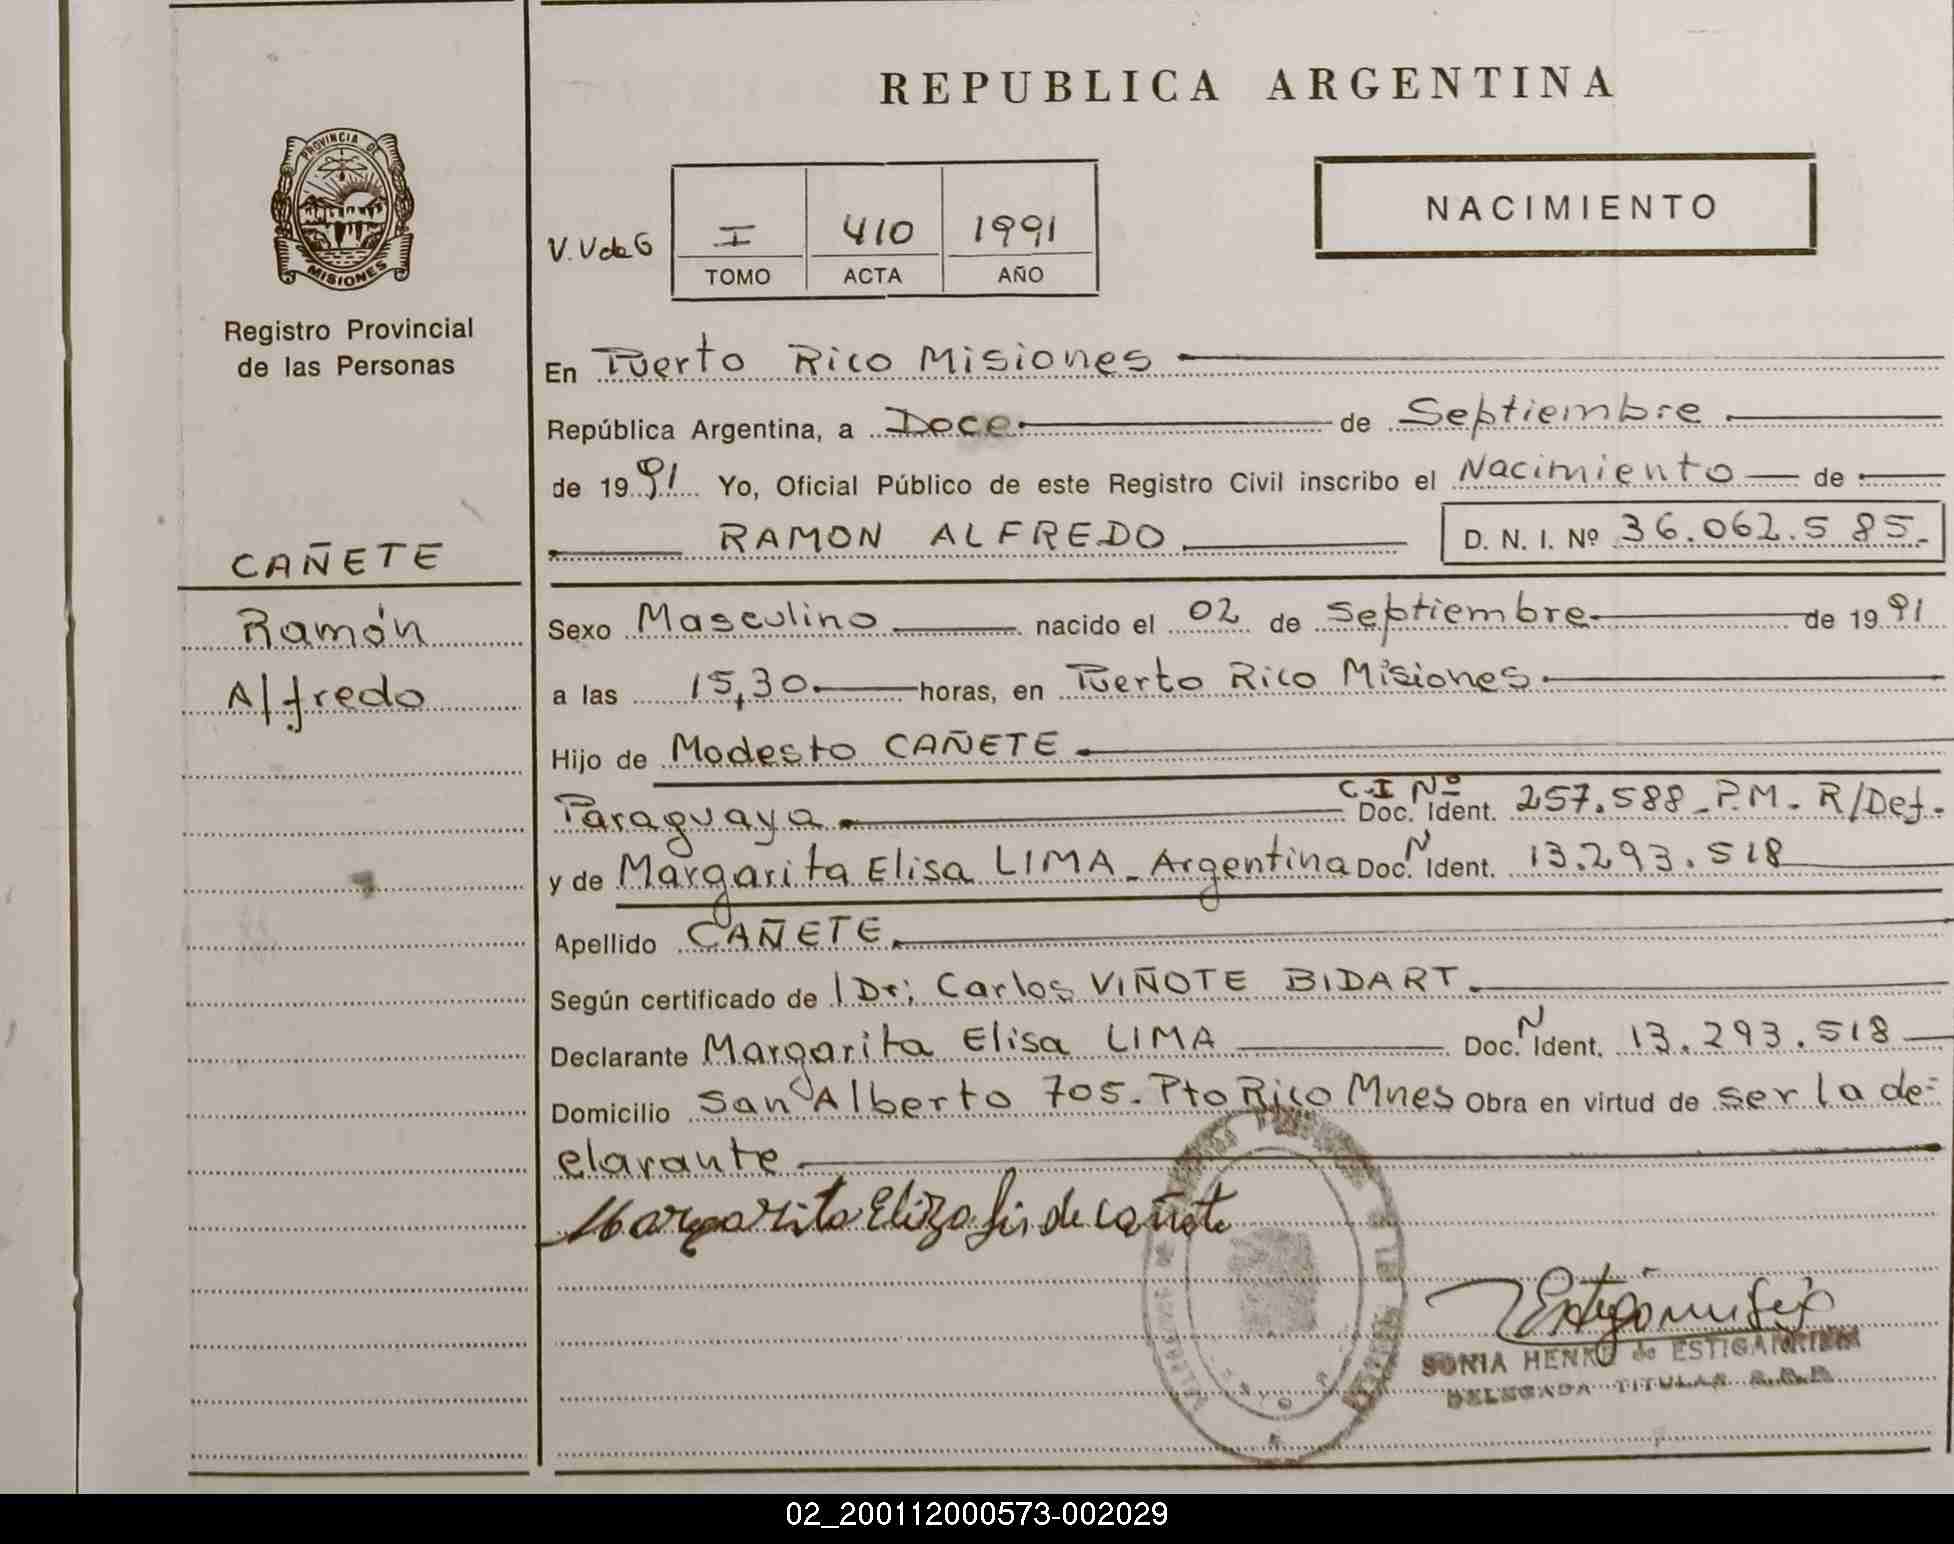 REPUBLICA ARGENTINA
PROVINCIA DE
MISIONES
Registro Provincial
de las Personas
NACIMIENTO
V.V de G
I 410 1991
TOMO ACTA AÑO
En Puerto Rico Misiones
República Argentina, a Doce de Septiembre
de 1991 Yo, Oficial Público de este Registro Civil inscribo el Nacimiento de
RAMON ALFREDO D. N. I. Nº 36.062.585.-
CAÑETE
Ramón
Alfredo
Sexo Masculino nacido el 02 de Septiembre de 1991
a las 15,30 horas, en Puerto Rico Misiones
Hijo de Modesto CAÑETE
Paraguaya C.I Nº Doc. Ident. 257.588-P.M. R/Def.
y de Margarita Elisa LIMA - Argentina Doc. N Ident. 13.293.518
Apellido CAÑETE
Según certificado de Dr; Carlos VIÑOTE BIDART
Declarante Margarita Elisa LIMA Doc. N Ident. 13.293.518
Domicilio San Alberto 705. Pto Rico Mnes Obra en virtud de ser la de-
clarante
Margarita Eliza de Cañete
SONIA HENKE de ESTIGARRIBIA
DELEGADA TITULAR
02_200112000573-002029